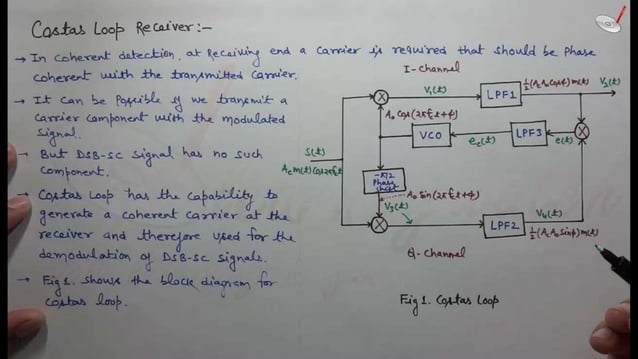 Costas Loop Receiver:-
→ In coherent detection, at Receiving end a carrier is required that should be phase
coherent with the transmitted carrier.
→ It can be possible if we transmit a
carrier component with the modulated
signal.
→ But DSB-SC signal has no such
component.
→ Costas Loop has the capability to
generate a coherent carrier at the
receiver and therefore used for the
demodulation of DSB-SC signals.
→ Fig 1. shows the block diagram for
costas loop.
I-Channel
V₁(t)
LPF1
½(AcA₀cosϕ)m(t)
V₂(t)
A₀cos(2πfct+ϕ)
VCO
ec(t)
LPF3
e(t)
S(t)
Acm(t)cos2πfct
-π/2
Phase
Shift
A₀sin(2πfct+ϕ)
V₃(t)
LPF2
V₄(t)
½(AcA₀sinϕ)m(t)
Q-Channel
Fig 1. Costas Loop